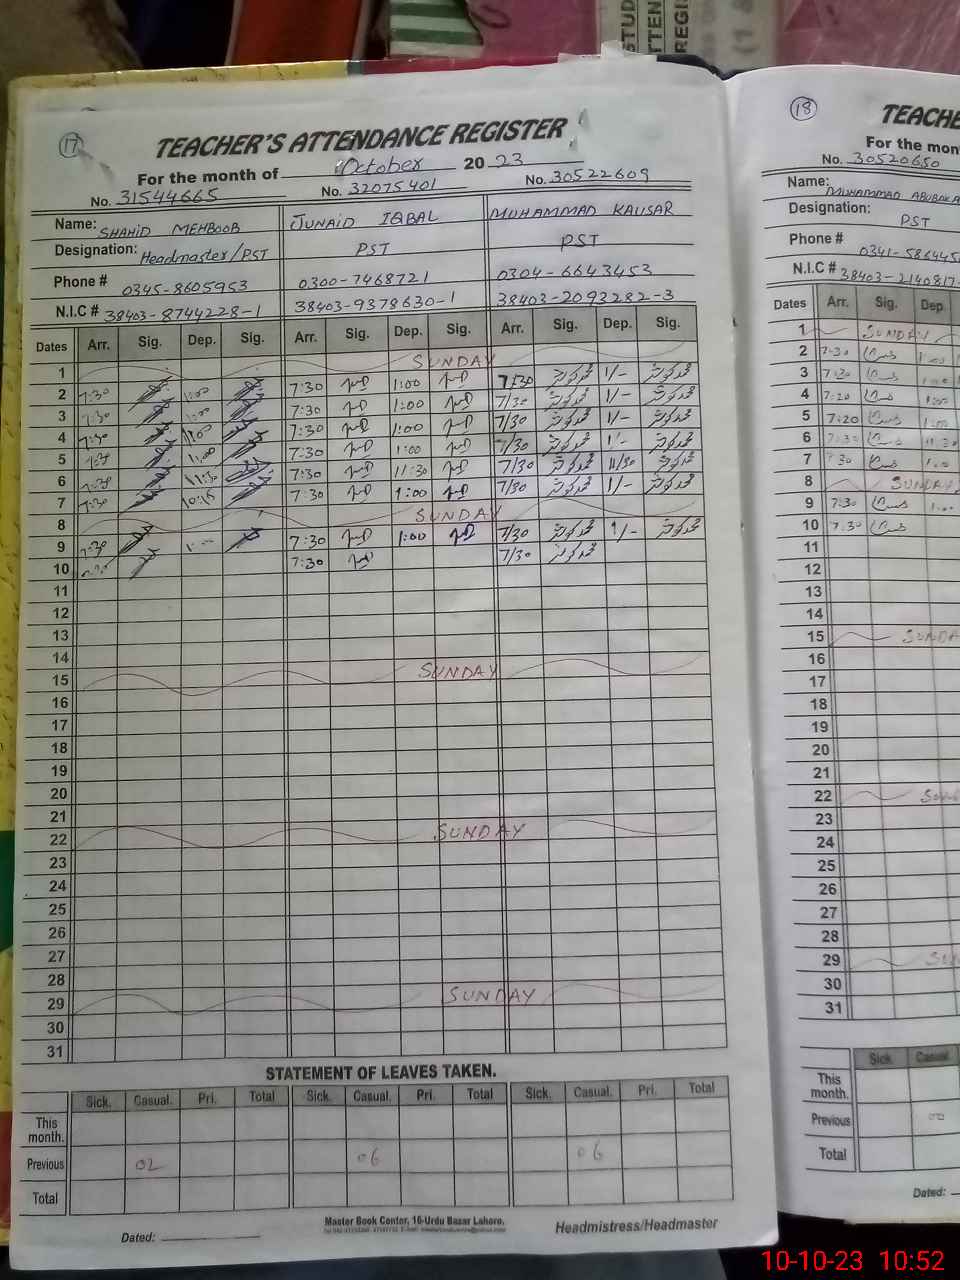 STUD
ATTEN
REGI
17
TEACHER'S ATTENDANCE REGISTER
For the month of October 2023
No. 31544665 No. 32075401 No. 30522609
Name: SHAHID MEHBOOB JUNAID IQBAL MUHAMMAD KAUSAR
Designation: Headmaster/PST PST PST
Phone # 0345-8605953 0300-7468721 0304-6643453
N.I.C # 38403-8744228-1 38403-9378630-1 38403-2093282-3
Dates Arr. Sig. Dep. Sig. Arr. Sig. Dep. Sig. Arr. Sig. Dep. Sig.
1 SUNDAY
2 7:30 1:00 7:30 1:00 7:30 1/-
3 7:30 1:00 7:30 1:00 7/30 1/-
4 7:30 1:00 7:30 1:00 7/30 1/-
5 1:00 7:30 1:00 7/30 1/-
6 11:30 7:30 11:30 7/30 11/30
7 7:30 10:15 7:30 1:00 7/30 1/-
8 SUNDAY
9 7:30 1:00 7:30 1:00 7/30 1/-
10 7:30 7:30 7/30
11
12
13
14
15 SUNDAY
16
17
18
19
20
21
22 SUNDAY
23
24
25
26
27
28
29 SUNDAY
30
31
STATEMENT OF LEAVES TAKEN.
Sick. Casual. Pri. Total Sick. Casual. Pri. Total Sick. Casual. Pri. Total
This month.
Previous 02 06 06
Total
Master Book Center, 16-Urdu Bazar Lahore.
Dated: Headmistress/Headmaster
18
TEACHE
For the mon
No. 30520650
Name: MUHAMMAD ABUBAKA
Designation: PST
Phone # 0341-586445
N.I.C # 38403-2140817-
Dates Arr. Sig. Dep
1 SUNDAY
2 7:30 1:00
3 7:30 1:00
4 7:20 1:00
5 7:20 1:00
6 7:30 11:30
7 7:30 1:00
8 SUNDAY
9 7:30 1:00
10 7:30
11
12
13
14
15 SUNDA
16
17
18
19
20
21
22 SUN
23
24
25
26
27
28
29 SUN
30
31
Sick. Casual.
This month.
Previous 00
Total
Dated:
10-10-23 10:52